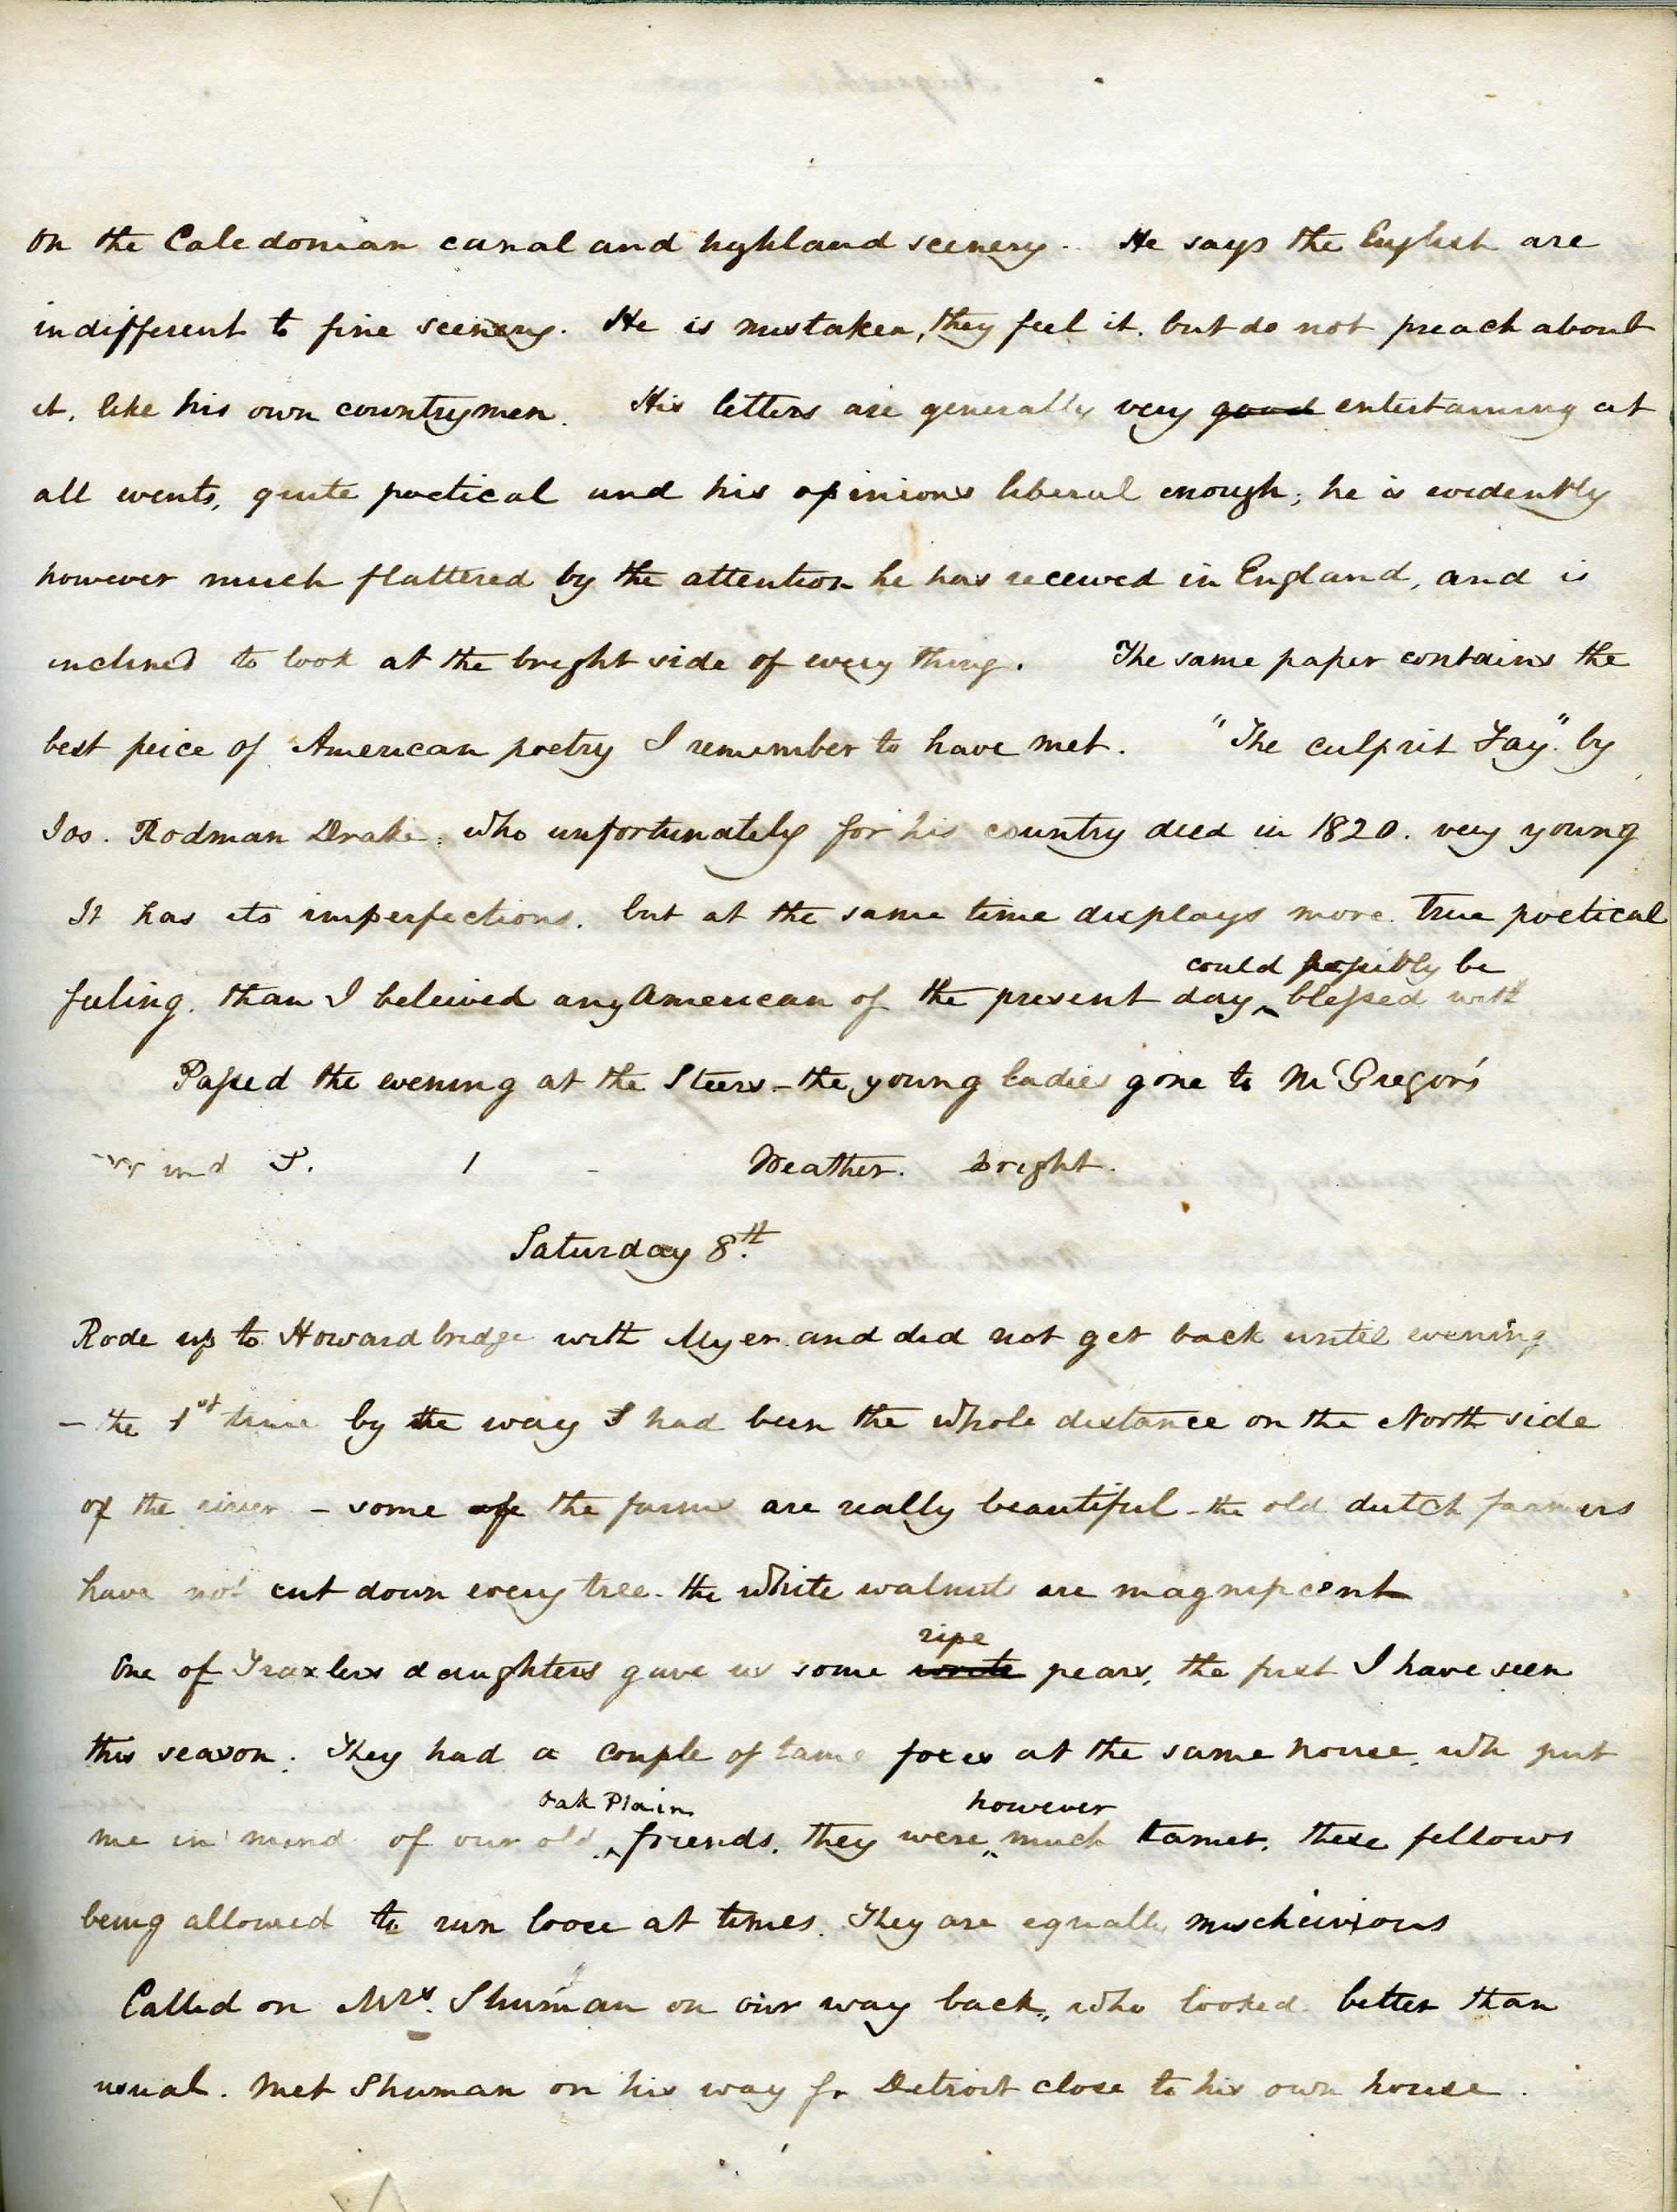 on the Caledonian canal and highland scenery. He says the English are
indifferent to fine scenery. He is mistaken, they feel it. but do not preach about
it, like his own countrymen. His letters are generally very good entertaining at
all events, quite poetical and his opinions liberal enough; he is evidently
however much flattered by the attention he has received in England, and is
inclined to look at the bright side of every thing. The same paper contains the
best peice of American poetry I remember to have met. "The culprit Fay". by
Jos. Rodman Drake, who unfortunately for his country died in 1820. very young
It has its imperfections. but at the same time displays more true poetical
could possibly be
feeling. than I beleived any American of the present day ‸ blessed with
Passed the evening at the Steers - the young ladies gone to McGregor's
Wind S. 1 - Weather. bright.
Saturday 8th.
Rode up to Howard bridge with Myer. and did not get back until evening
- the 1st time by the way I had been the whole distance on the North side
of the river - some of the farms are really beautiful - the old dutch farmers
have not cut down every tree - the white walnuts are magnificent
ripe
One of Traxlers daughters gave us some pears, the first I have seen
this season. They had a couple of tame foxes at the same house, wh put
oak Plain however
me in mind of our old ‸ friends. they were ‸ much tamer. these fellows
being allowed to run loose at times. They are equally mischeivious
Called on Mrs. Shuman on our way back, who looked better than
usual. Met Shuman on his way fr Detroit close to his own house.